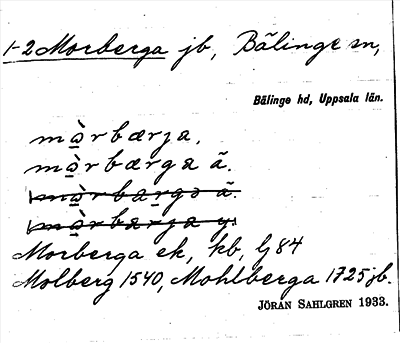 1-2 Morberga jb, Bälinge sn,
Bälinge hd, Uppsala län.
mọ̀rbærja,
mọ̀rbærga ã.
mọ̀rbargo ã.
mọ̀rbarja y.
Morberga ek, kb, G 84
Molberg 1540, Mohlberga 1725 jb.
JÖRAN SAHLGREN 1933.